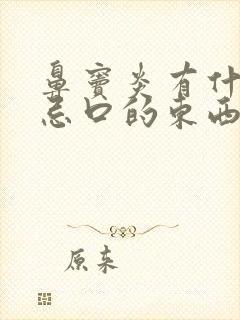 鼻窦炎有什
忌口的东西
原来